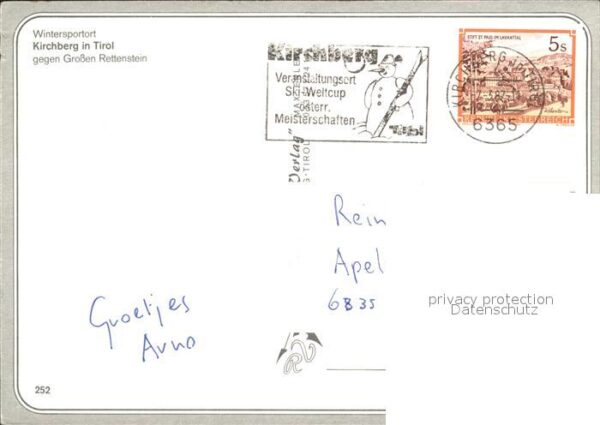 Wintersportort
Kirchberg in Tirol
gegen Großen Rettenstein
Kirchberg
Veranstaltungsort
Ski-Weltcup
österr.
Meisterschaften
Tirol
STIFT ST. PAUL IM LAVANTTAL
5s
6365
Verlag"
Rein
Apel
6B35
privacy protection
Datenschutz
Groetjes
Arno
252